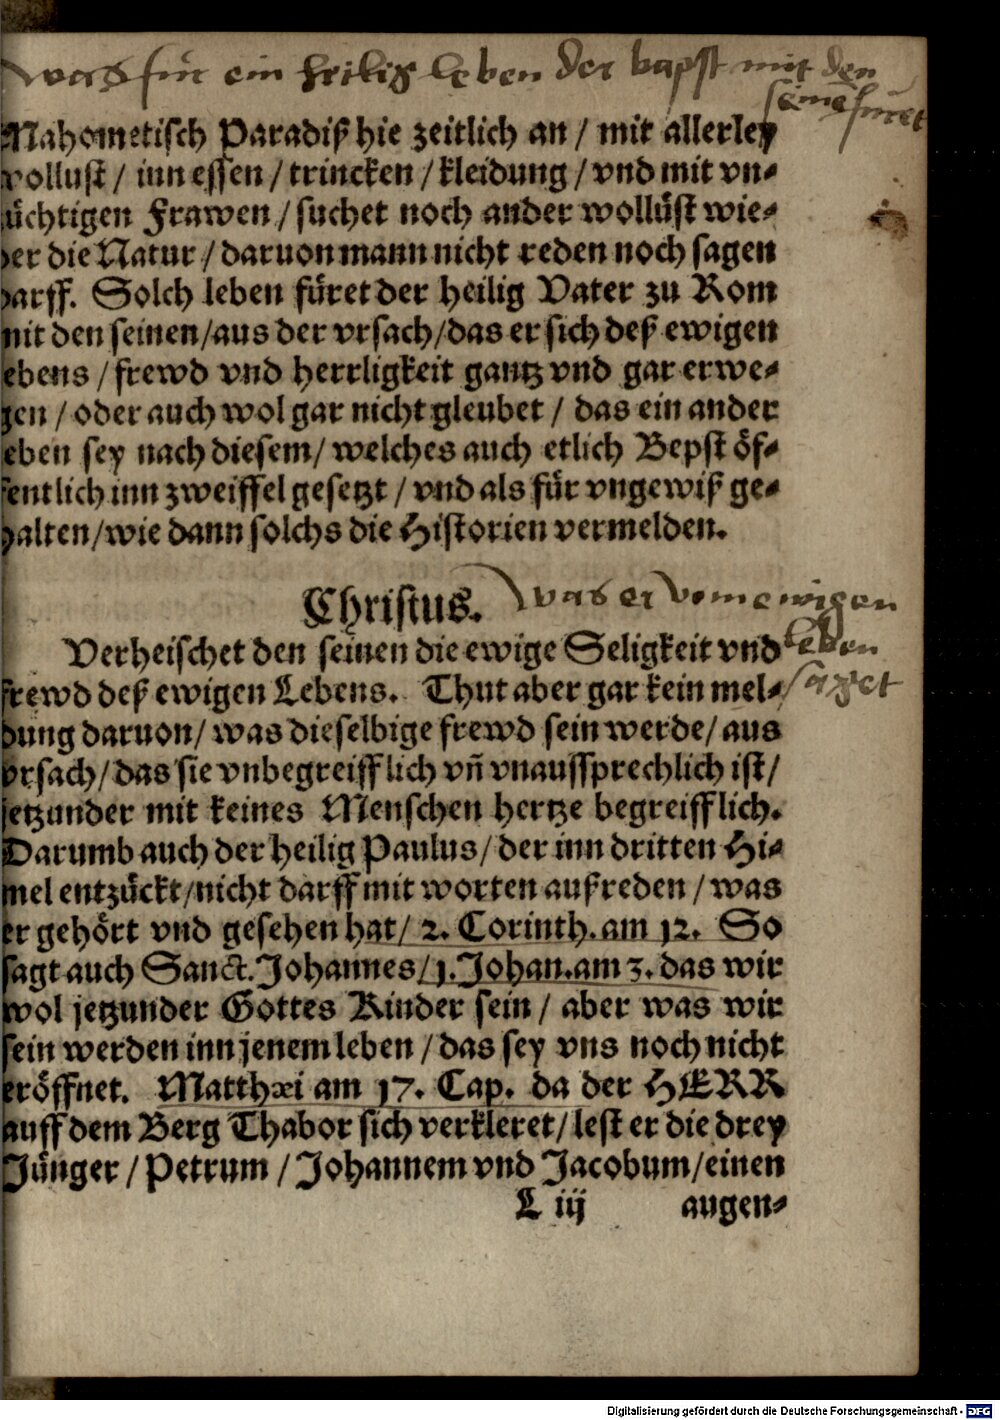 was für ein heilig leben der bapst mit den
seinē füret
Mahometisch Paradiß hie zeitlich an / mit allerley
wollust / inn essen / trincken / kleidung / vnd mit vn⸗
üchtigen Frawen / suchet noch ander wollüst wie⸗
der die Natur / daruon mann nicht reden noch sagen
darff. Solch leben füret der heilig Vater zu Rom
mit den seinen / aus der vrsach / das er sich deß ewigen
ebens / frewd vnd herrligkeit gantz vnd gar erwe⸗
gen / oder auch wol gar nicht gleubet / das ein ander
eben sey nach diesem / welches auch etlich Bepst öf⸗
fentlich inn zweiffel gesetzt / vnd als für vngewiß ge⸗
halten / wie dann solchs die Historien vermelden.
Christus.
was er vom ewigen
leben
saget
Verheischet den seinen die ewige Seligkeit vnd
frewd deß ewigen Lebens. Thut aber gar kein mel⸗
dung daruon / was dieselbige frewd sein werde / aus
vrsach / das sie vnbegreifflich vñ vnaussprechlich ist /
jetzunder mit keines Menschen hertze begreifflich.
Darumb auch der heilig Paulus / der inn dritten Hi⸗
mel entzückt / nicht darff mit worten außreden / was
er gehört vnd gesehen hat / 2. Corinth. am 12. So
sagt auch Sanct. Johannes / 1. Johan. am 3. das wir
wol jetzunder Gottes Kinder sein / aber was wir
sein werden inn jenem leben / das sey vns noch nicht
eröffnet. Matthæi am 17. Cap. da der HERR
auff dem Berg Thabor sich verkleret / lest er die drey
Jünger / Petrum / Johannem vnd Jacobum / einen
L iij augen⸗
Digitalisierung gefördert durch die Deutsche Forschungsgemeinschaft - DFG